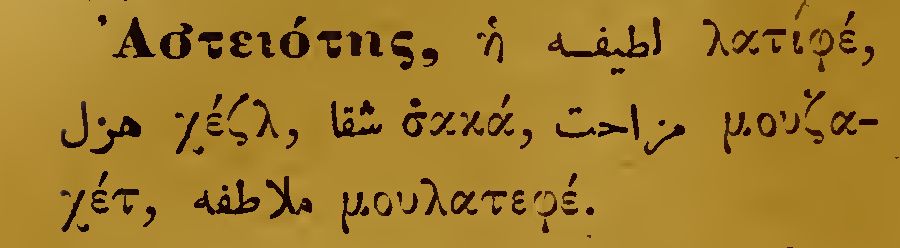 Ἀστειότης, ἡ لطيفه λατιφέ,
هزل χέζλ, شقا σ̇ακά, مزاحت μουζα-
χέτ, ملاطفه μουλατεφέ.